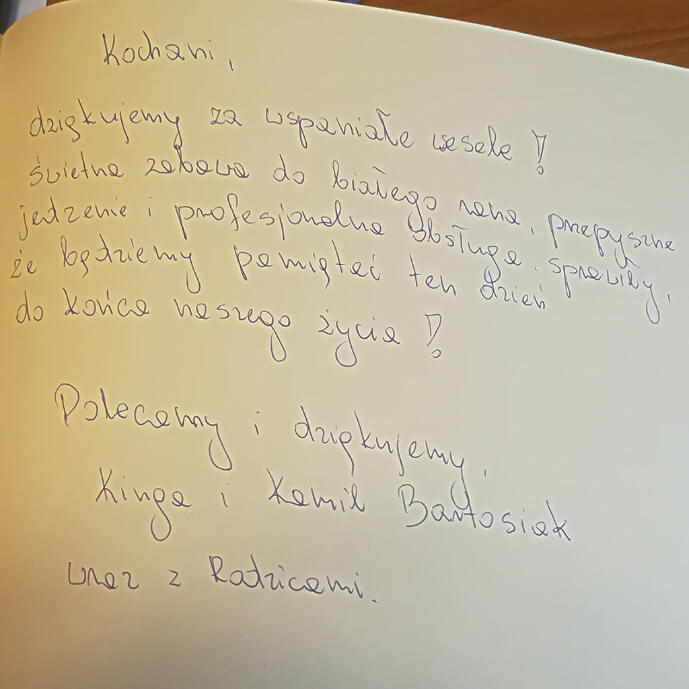 Kochani,
dziękujemy za wspaniałe wesele!
świetna zabawa do białego rana, przepyszne
jedzenie i profesjonalna obsługa sprawiły,
że będziemy pamiętać ten dzień
do końca naszego życia!
Polecamy i dziękujemy,
Kinga i Kamil Bartosiak
wraz z Rodzicami.